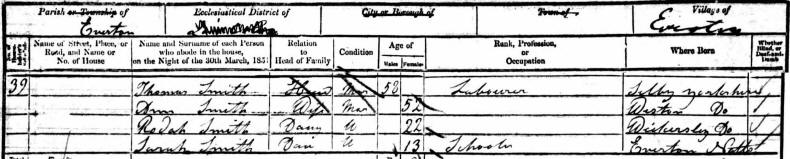 Parish or Township of Ecclesiastical District of City or Borough of Town of Village of
Everton Everton
Name of Street, Place, or Road, and Name or No. of House Name and Surname of each Person who abode in the house, on the Night of the 30th March, 1851 Relation to Head of Family Condition Age of Males Females Rank, Profession, or Occupation Where Born Whether Blind, or Deaf-and-Dumb
39 Thomas Smith Head Mar 53 Labourer Selby Yorkshire
Ann Smith Wife Mar 52 Weston Do
Rodah Smith Daur U 22 Wickersley Do
Sarah Smith Daur U 13 Scholar Everton Notts